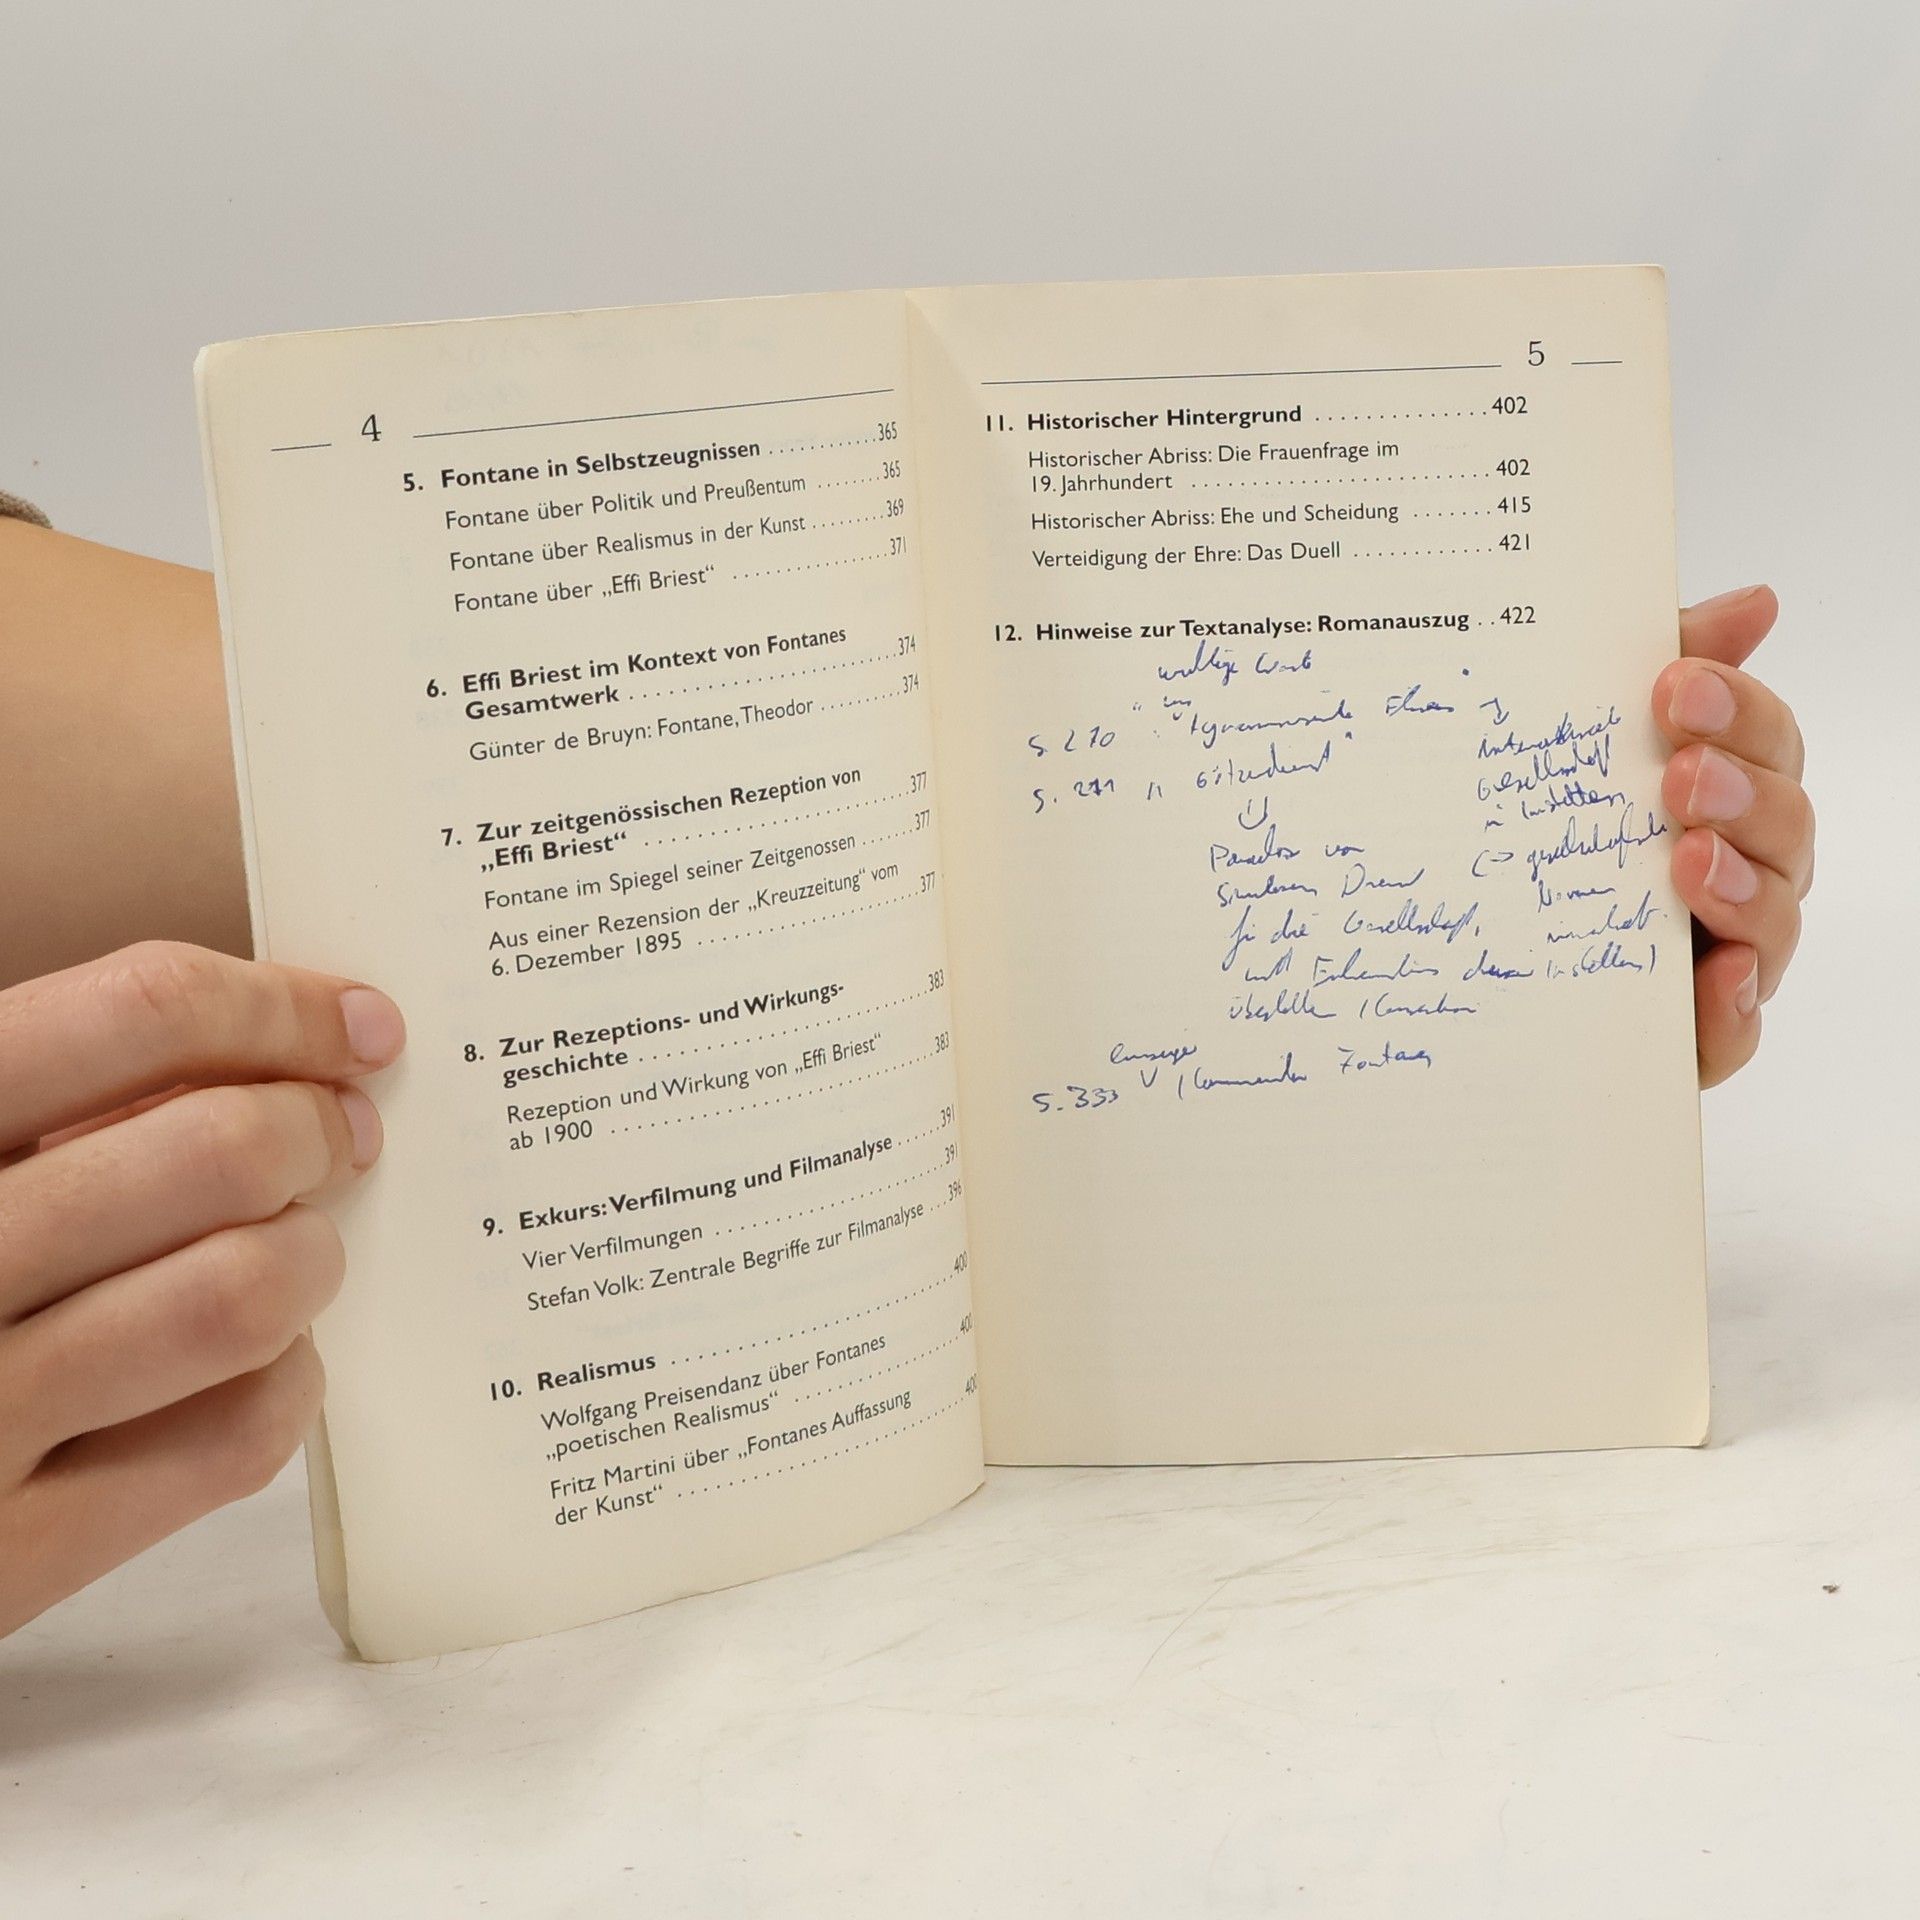 4
5. Fontane in Selbstzeugnissen ............365
Fontane über Politik und Preußentum ........365
Fontane über Realismus in der Kunst .........369
Fontane über „Effi Briest“ ................371
6. Effi Briest im Kontext von Fontanes
Gesamtwerk ........................374
Günter de Bruyn: Fontane, Theodor ..........374
7. Zur zeitgenössischen Rezeption von
„Effi Briest“ ........................377
Fontane im Spiegel seiner Zeitgenossen .......377
Aus einer Rezension der „Kreuzzeitung“ vom
6. Dezember 1895 ....................377
8. Zur Rezeptions- und Wirkungs-
geschichte ........................383
Rezeption und Wirkung von „Effi Briest“
ab 1900 ............................383
9. Exkurs: Verfilmung und Filmanalyse ......391
Vier Verfilmungen .....................391
Stefan Volk: Zentrale Begriffe zur Filmanalyse ...396
10. Realismus ........................400
Wolfgang Preisendanz über Fontanes
„poetischen Realismus“ ................400
Fritz Martini über „Fontanes Auffassung
der Kunst“ ........................400
5
11. Historischer Hintergrund ..............402
Historischer Abriss: Die Frauenfrage im
19. Jahrhundert .........................402
Historischer Abriss: Ehe und Scheidung .......415
Verteidigung der Ehre: Das Duell ............421
12. Hinweise zur Textanalyse: Romanauszug ..422
S. 270
S. 271 „ Götzendienst“
Gesellschaft
Paradox von
für die Gesellschaft,
Normen
S. 333